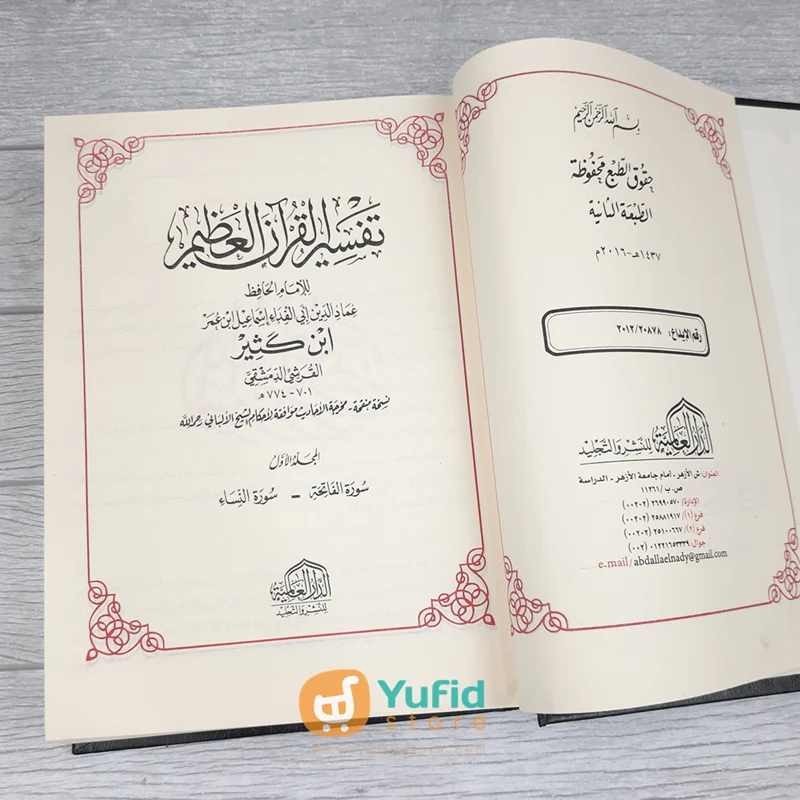 بسم الله الرحمن الرحيم
حقوق الطبع محفوظة
الطبعة الثانية
١٤٣٧هـ-٢٠١٦م
رقم الإيداع: ٢٠١٢/٢٠٨٧٨
الدار العالمية
للنشر والتجليد
العنوان: ش الأزهر - امام جامعة الأزهر - الدراسة
ص.ب/ ١١٣٦١
الإدارة/ ٢٦٩٩٠٥٧٠ (٠٠٢٠٢)
فرع (١)/ ٢٥٨٨١٩١٧ (٠٠٢٠٢)
فرع (٢)/ ٢٥١٠٠٦٦٧ (٠٠٢٠٢)
جوال: ٠١٢٢١٦٥٣٣٣٩ (٠٠٢)
e.mail/ abdallaelnady@gmail.com
تفسير القرآن العظيم
للإمام الحافظ
عماد الدين أبي الفداء إسماعيل ابن عمر
ابن كثير
القرشي الدمشقي
٧٠١-٧٧٤هـ
نسخة منقحة - مخرجة الأحاديث موافقة لأحكام الشيخ الألباني رحمه الله
المجلد الأول
سورة الفاتحة - سورة النساء
الدار العالمية
للنشر والتجليد
Yufid
store